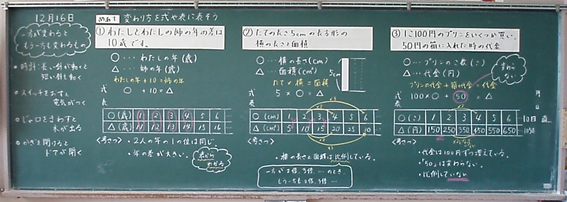 12月16日
めあて 変わり方を式や表に表そう
一方が変わると
もう一方も変わるもの
・時計：長い針が動くと
短い針も動く
・スイッチをおすと
電気がつく
・じゃ口をさわると
水が出る
・かぎを開けると
ドアが開く
①わたしとわたしの姉の年の差は
10歳です。
○…わたしの年(歳)
△…姉の年(歳)
わたしの年＋10＝姉の年
式 ○＋10＝△
表
○(歳) 1 2 3 4 5 6
△(歳) 11 12 13 14 15 16
・2人の年の一の位は同じ
・年の差が大きい。
②たての長さ5cmの長方形の
横の長さと面積
○…横の長さ(cm)
△…面積(cm²)
5cm
たて×横＝面積
式 5×○＝△
表
○(cm) 1 2 3 4 5 6
△(cm²) 5 10 15 20 25 30
・横の長さと面積は比例している。
一方が2倍、3倍、…のとき、
もう一方も2倍、3倍…
③1こ100円のプリンをいくつか買い、
50円の箱に入れた時の代金
○…プリンのこ数(こ)
△…代金(円)
プリンの代金＋箱の代金＝代金
式 100×○＋50＝△
表
○(こ) 1 2 3 4 5 6
△(円) 150 250 350 450 550 650
・代金は100円ずつ増えている。
・「50」は変わらない。
・比例していない